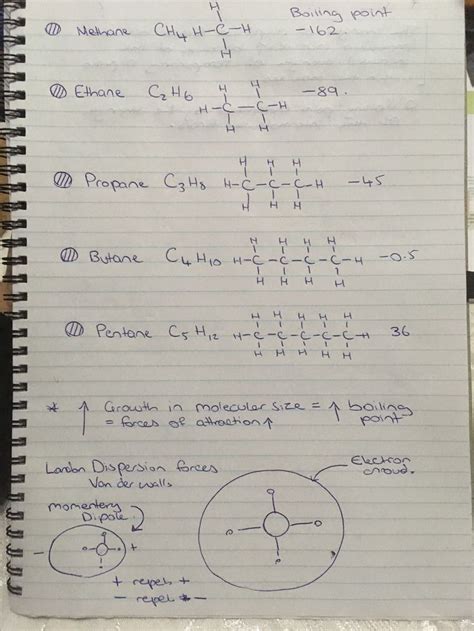 Boiling point
Methane CH4 H-C-H -162.
Ethane C2H6 H-C-C-H -89.
Propane C3H8 H-C-C-C-H -45
Butane C4H10 H-C-C-C-C-H -0.5
Pentane C5H12 H-C-C-C-C-C-H 36
* ↑ Growth in molecular size = ↑ boiling point
= forces of attraction ↑
London Dispersion forces
Van der walls
Electron cloud.
momentery
Dipole.
- +
+ repels +
- repel -